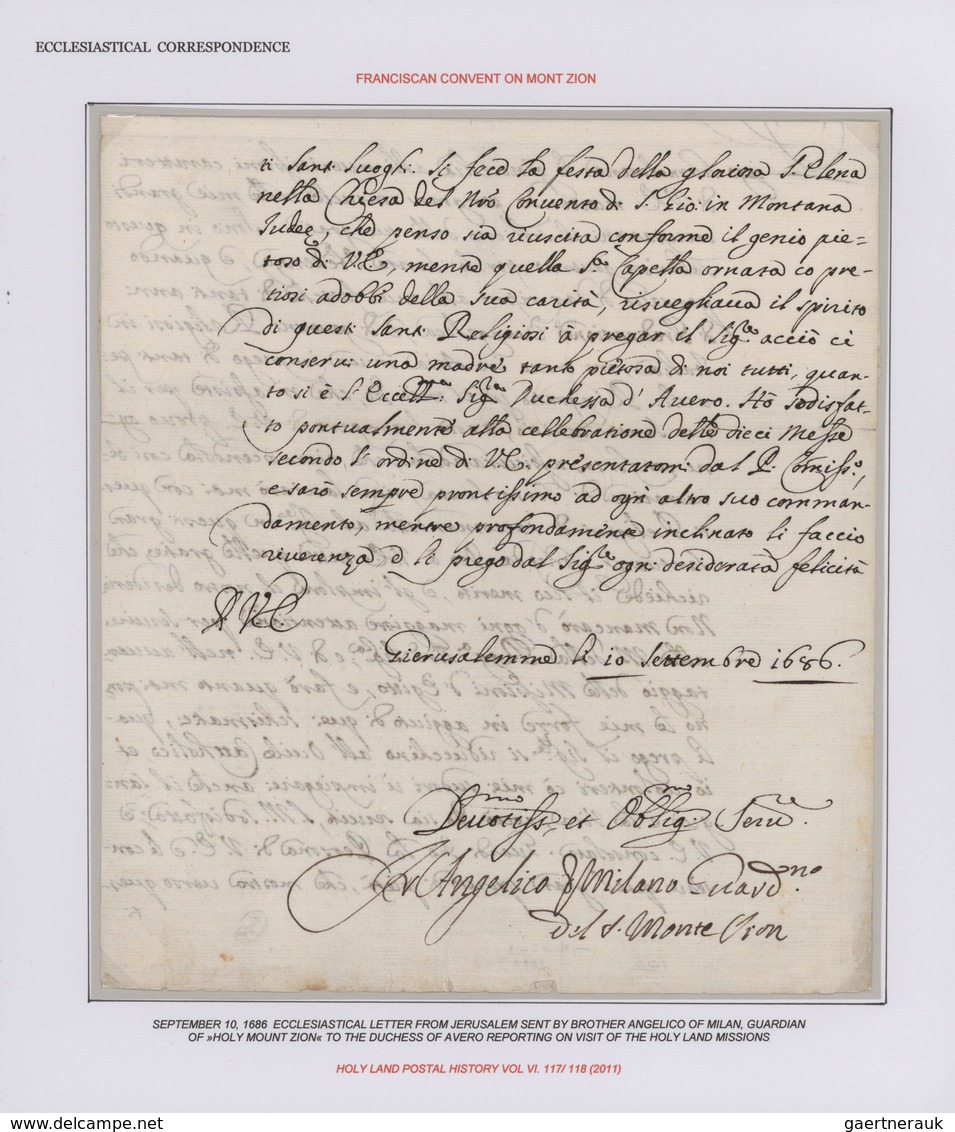 ECCLESIASTICAL CORRESPONDENCE
FRANCISCAN CONVENT ON MONT ZION
ti Santi Luoghi. Si fece la festa della gloriosa S. Elena
nella Chiesa del Nro Convento di S. Gio: in Montana
Judeę, che penso sia riuscita conforme il genio pie=
toso di V.E., mentre quella Sta Capella ornata co pre-
tiosi adobbi della sua carità, risvegliava il spirito
di questi Santi Religiosi à pregar il Sigre acciò ci
conservi una madre tanto pietosa di noi tutti, quan-
to si è l'Eccellma Sigra Duchessa d'Avero. Hò sodisfat-
to pontualmente alla cellebratione delle dieci Messe
secondo l'ordine di V.E. presentatomi dal P. Comisso,
e sarò sempre prontissimo ad ogni altro suo comman-
damento, mentre profondamente inclinato li faccio
riverenza e li prego dal Sigre ogni desiderata felicità
D. V.E.
Gierusalemme li 10 Settembre 1686.
Devotissmo et Obligmo Serve.
Fr Angelico di Milano Guardno.
del S. Monte Sion
SEPTEMBER 10, 1686 ECCLESIASTICAL LETTER FROM JERUSALEM SENT BY BROTHER ANGELICO OF MILAN, GUARDIAN
OF »HOLY MOUNT ZION« TO THE DUCHESS OF AVERO REPORTING ON VISIT OF THE HOLY LAND MISSIONS
HOLY LAND POSTAL HISTORY VOL VI. 117/ 118 (2011)
www.delcampe.net
gaertnerauk